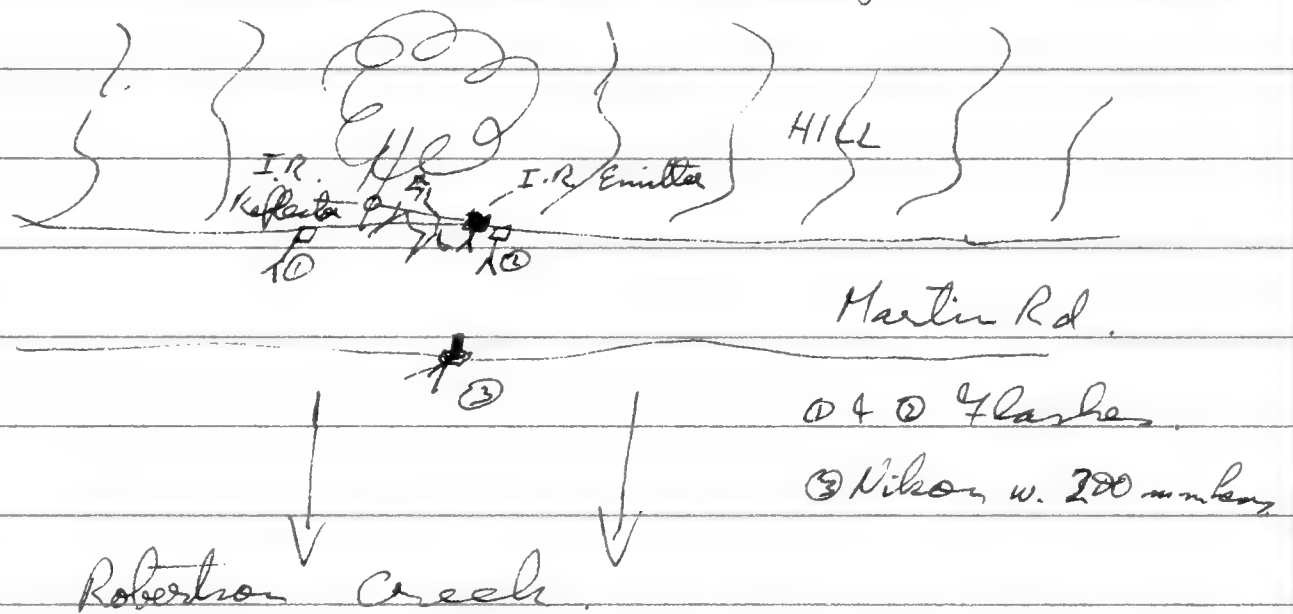 HILL
I.R. I.R. Emitter
Reflector
① ②
Martin Rd.
③
① & ② Flashes.
③ Nikon w. 200 mm lens
Robertson Creek.